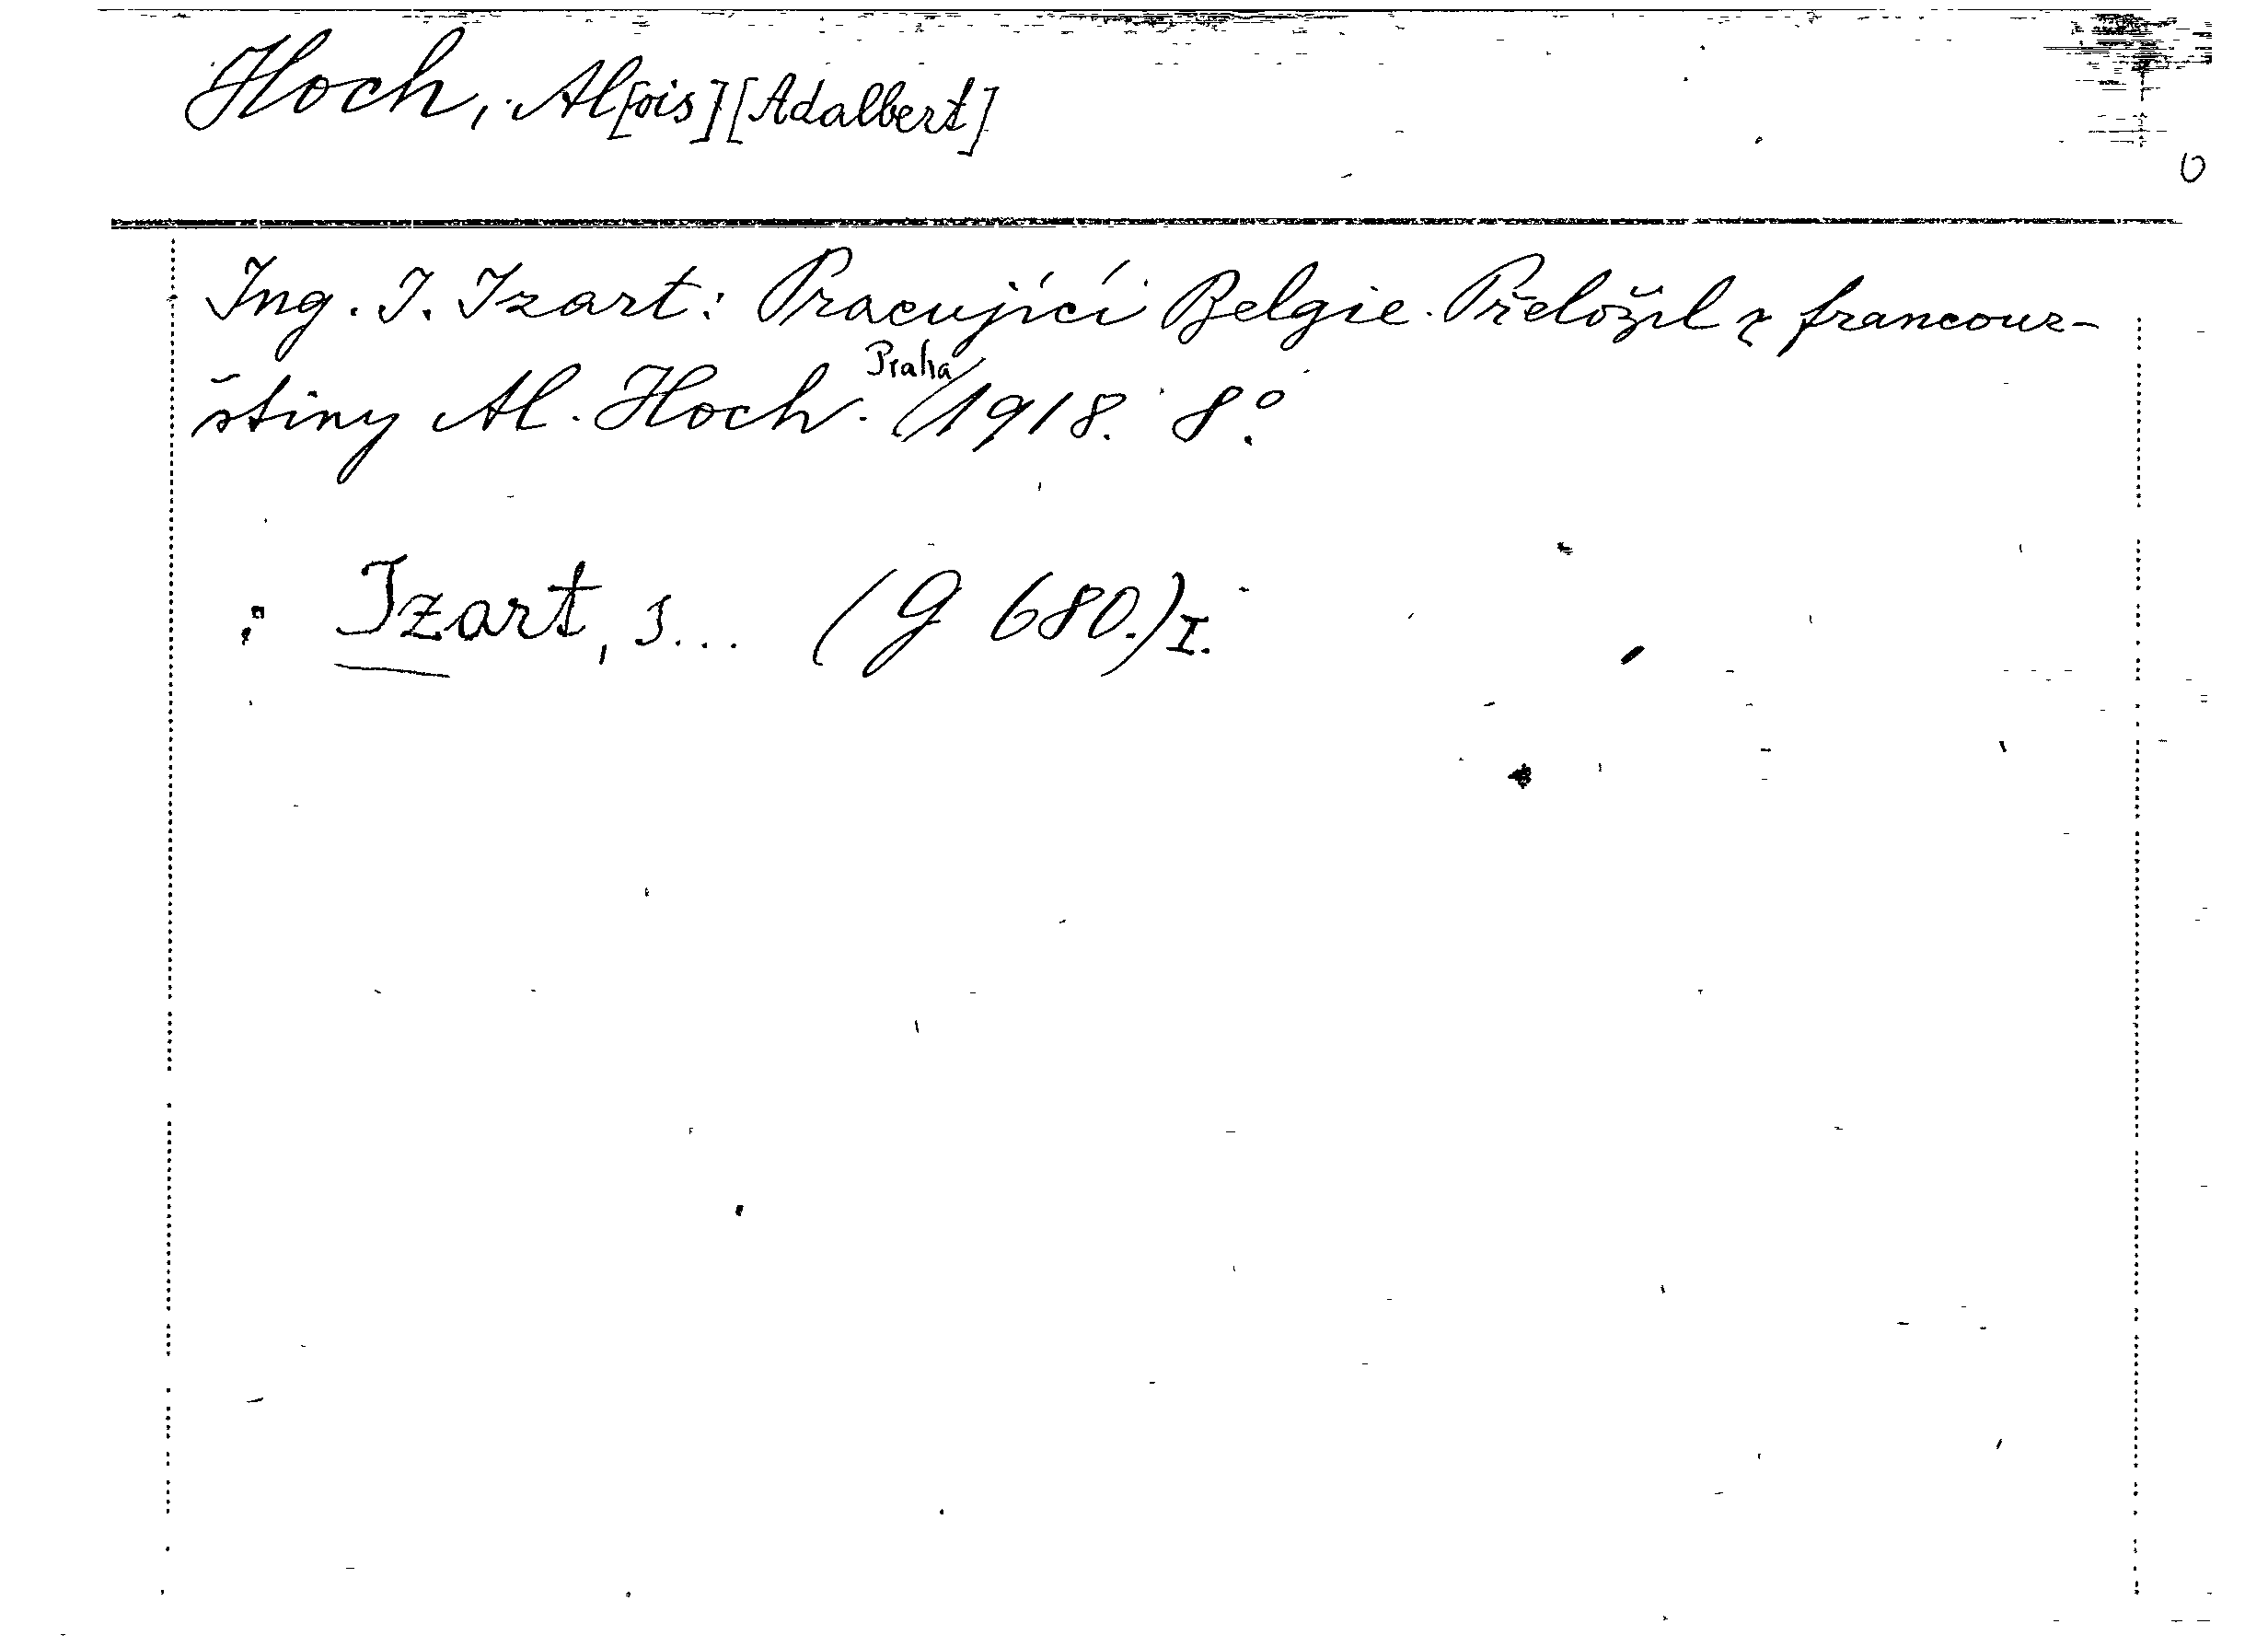 Hoch, Al[ois] [Adalbert]
Ing. J. Izart: Pracující Belgie. Přeložil z francouz-
štiny Al. Hoch. Praha 1918. 8.°
: Izart, J... (G 680.) I.